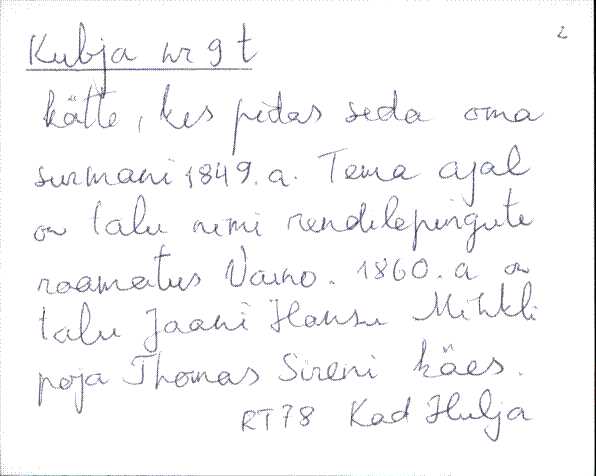 2
Kubja nr 9 t
kätte, kes pidas seda oma
surmani 1849. a. Tema ajal
on talu nimi rendilepingute
raamatus Vaino. 1860. a on
talu Jaani Hansu Mihkli
poja Thomas Sireni käes.
RT78 Kad Hulja